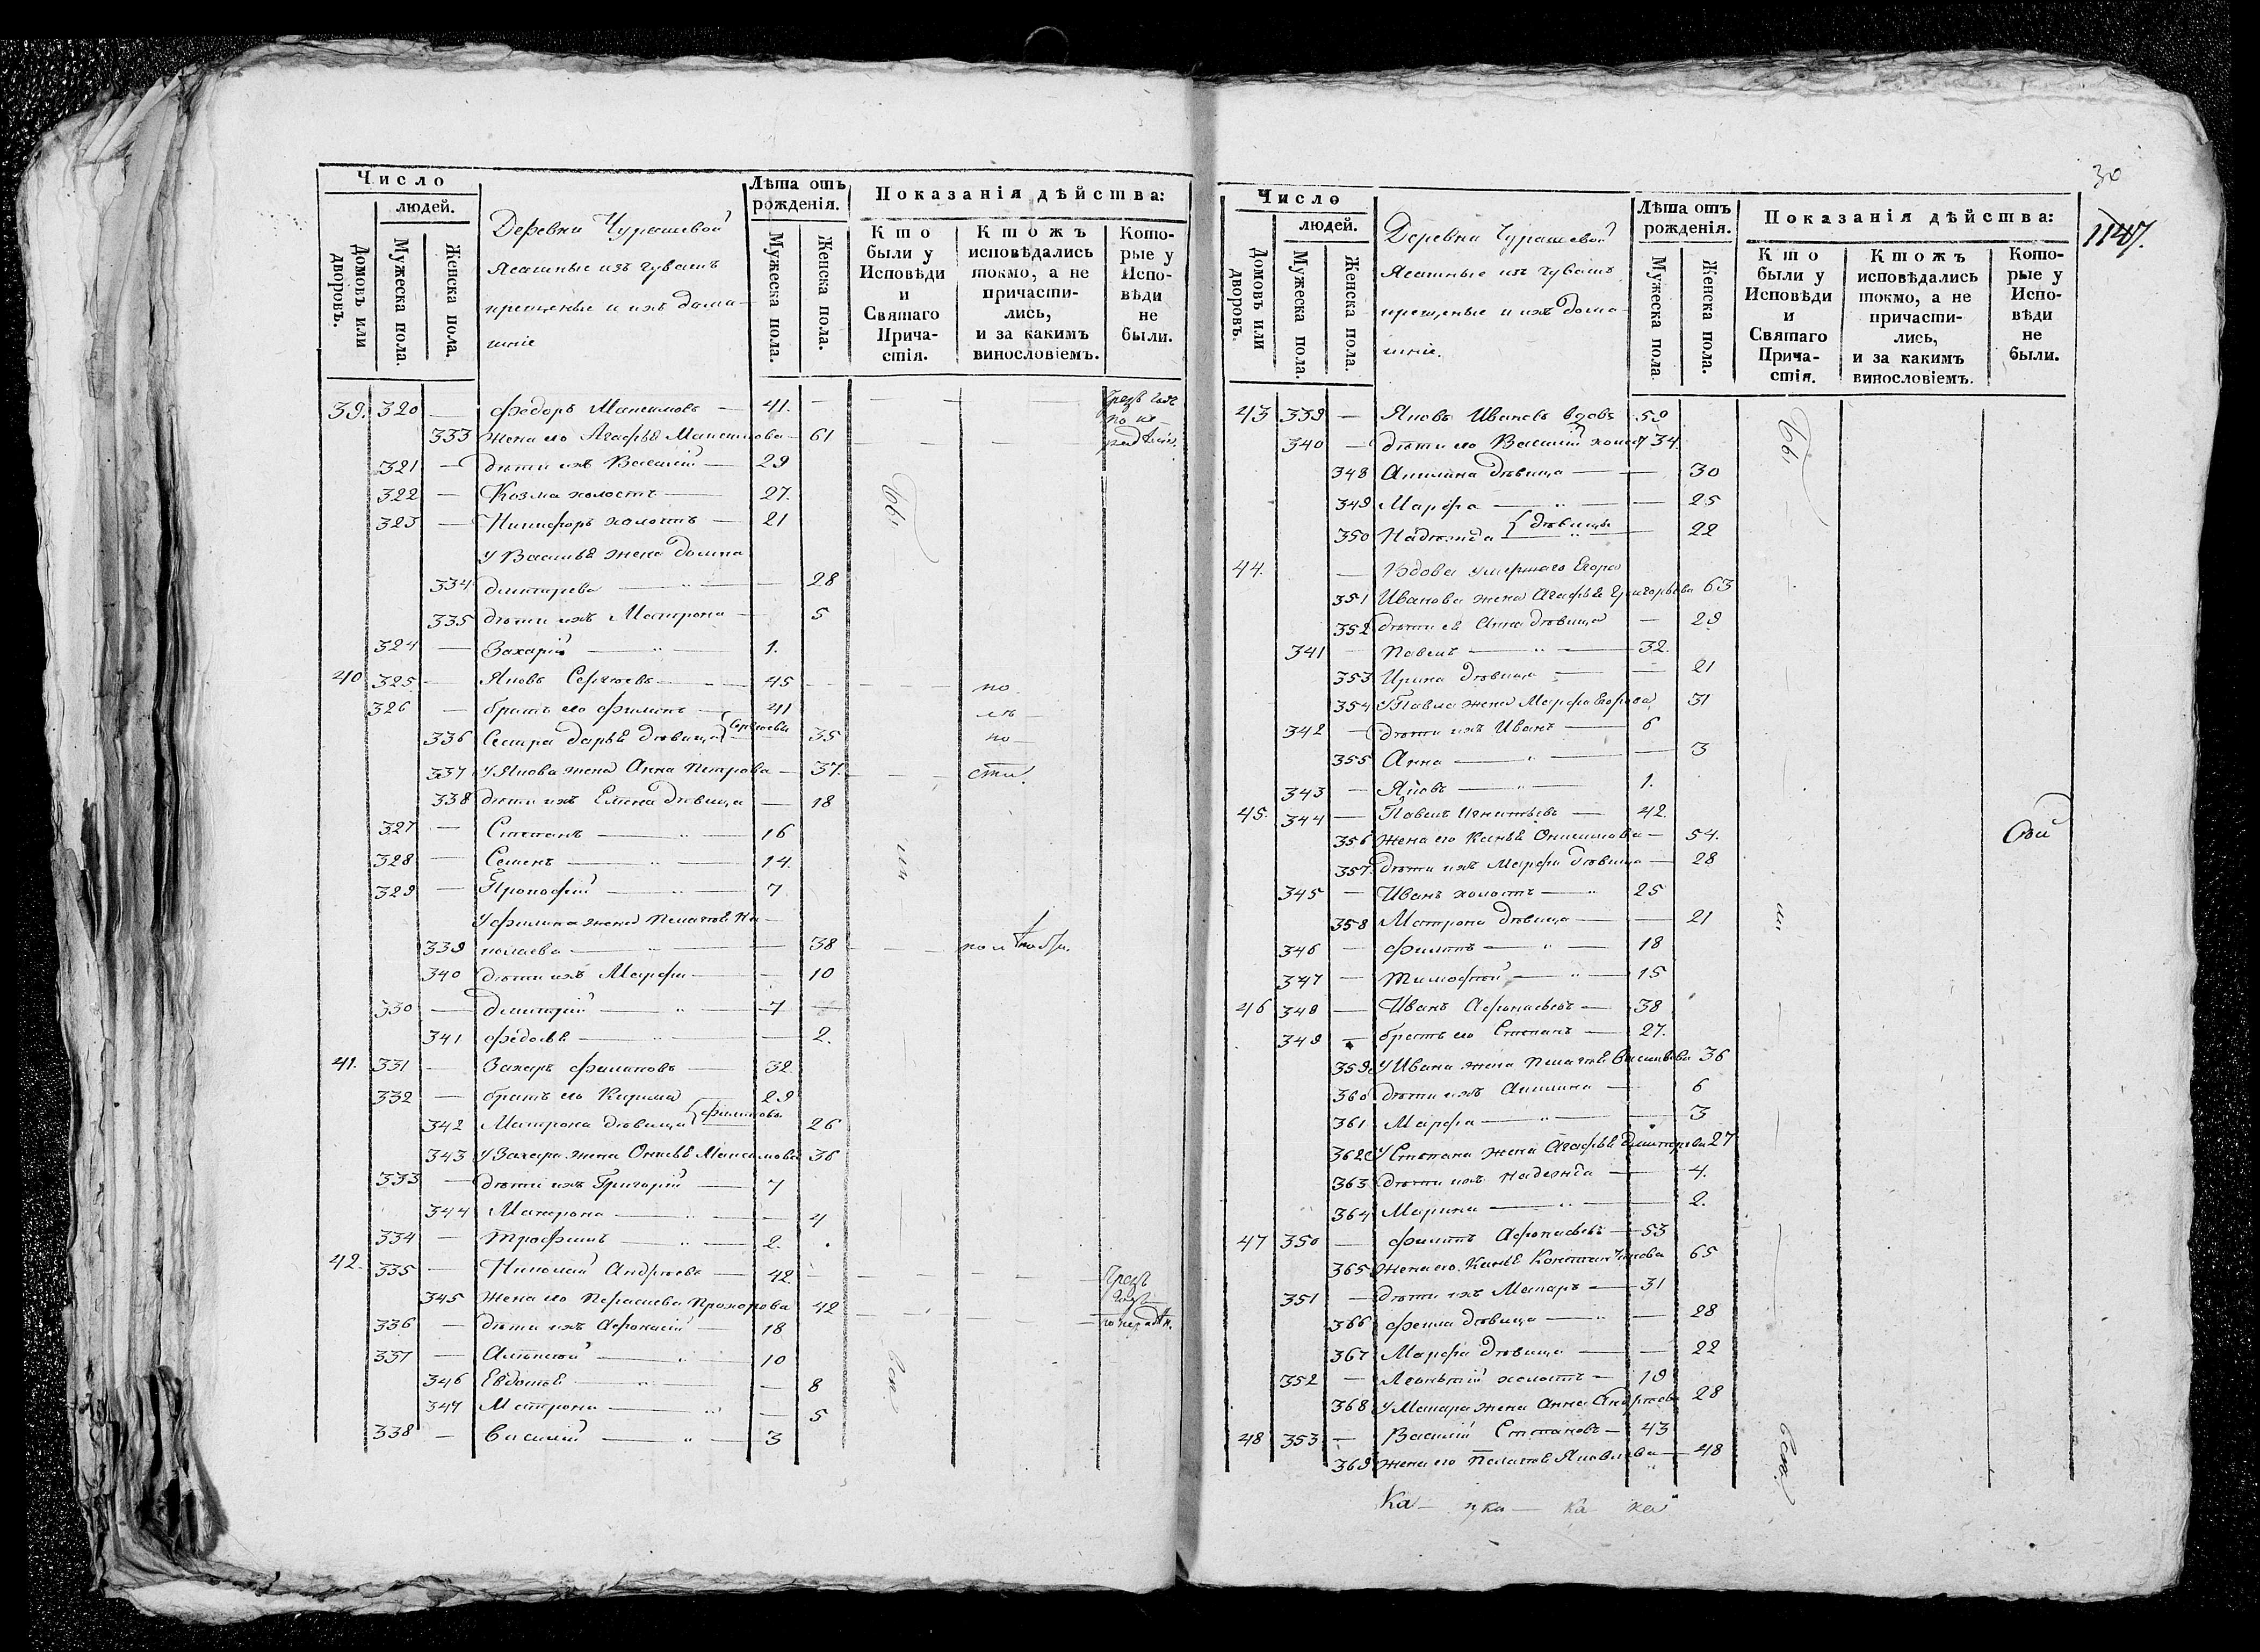 Число
людей.
Домовъ или дворовъ.
Мужеска пола.
Женска пола.
Деревни Чурашевой
Ясашные изъ чувашъ
крещеные и ихъ дома-
шніе
Лѣта отъ рожденія.
Мужеска пола.
Женска пола.
Показанія дѣйства:
Кто были у Исповѣди и Святаго Прича-стія.
Ктожъ исповѣдались токмо, а не причасти-лись, и за какимъ винословіемъ.
Кото-рые у Испо-вѣди не были.
39. 320 — Федоръ Максимовъ — 41.
333 жена его Агафья Максимова — 61
321 — дѣти ихъ Василій — 29
322 — Козма холостъ — 27.
323 — Никифоръ холостъ — 21
у Василья жена Домна
334 Дмитрева — " — — 28
335 дѣти ихъ Матрона — 5
324 — Захарій — " — 1.
40 325 — Яковъ Сергѣевъ — 45 по
326 — братъ его Филипъ — 41
336 Сестра Дарья дѣвица Сергѣевы 35 но
337 у Якова жена Анна Петрова — 37. сти.
338 дѣти ихъ Елена дѣвица — 18
327 — Степанъ — " — 16
328 — Семенъ — " — 14.
329 — Прокофій — " — 7
У Филипа жена Пелагея Ни-
339 колаева — " — — 38
340 дѣти ихъ Марфа — — 10
330 — Дмитрій — " — 7
341 Федосья — " — — 2.
41. 331 — Захаръ Филиповъ — 32
332 — братъ его Кирила — 29
342 Матрона дѣвица Филиповы 26
343 у Захара жена Онисья Максимова 36
333 — дѣти ихъ Григорій — 7
344 Матрона — " — — 4
334 — Трофимъ — " — 2.
42. 335 — Николай Андреевъ — 42.
345 жена его Парасковья Прохорова 42
336 — дѣти ихъ Афонасій — 18
337 — Алексей — " — 10
346 Евдотья — " — — 8
347 Матрона — " — — 5
338 — Василій — " — 3
бы
ли
всѣ
30
1147.
Число
людей.
Домовъ или дворовъ.
Мужеска пола.
Женска пола.
Деревни Чурашевой
Ясашные изъ чувашъ
крещеные и ихъ дома-
шніе.
Лѣта отъ рожденія.
Мужеска пола
Женска пола.
Показанія дѣйства:
Кто были у Исповѣди и Святаго Прича-стія.
Ктожъ исповѣдались токмо, а не причасти-лись, и за какимъ винословіемъ.
Кото-рые у Испо-вѣди не были.
43 339 — Яковъ Ивановъ вдовъ 59
340 — дѣти его Василій холостъ 34.
348 Акилина дѣвица — — 30
349 Марфа — " — — 25
350 Надежда дѣвицы — 22
44. — Вдова умершаго Егора
351 Иванова жена Агафья Григорьева 63
352 дѣти ея Анна дѣвица — 29
341 — Павелъ — " — 32.
353 Ирина дѣвица — — 21
354 у Павла жена Марфа Егорова 31
342 — дѣти ихъ Иванъ — 6
355 Анна — " — — 3
343 — Яковъ — " — 1.
45. 344 — Павелъ Игнатьевъ — 42.
356 жена его Ксенья Онисимова — 54.
357. дѣти ихъ Марфа дѣвица — 28
345 — Иванъ холостъ — " 25
358 Матрона дѣвица — — 21
346 — Филипъ — " — 18
347 — Тимофей — " — 15
46 348 — Иванъ Афонасьевъ — 38
349 — братъ его Степанъ — 27.
359. у Ивана жена Пелагея Васильева 36
360 дѣти ихъ Акилина — 6
361 Марфа — " — — 3
362 у Степана жена Агафья Дмитрева 27
363 дѣти ихъ Надежда — 4.
364 Марина — " — — 2.
47 350 — Филипъ Афонасьевъ — 53
365 жена его Ксенья Константинова 65
351 — дѣти ихъ Макаръ — 31
366 Фекла дѣвица — " — 28
367 Марфа дѣвица — — 22
352 — Леонтій холостъ — 19
368 у Макара жена Анна Андреева 28
48 353 — Василій Степановъ — 43
369 жена его Пелагея Яковлева — 48
бы
ли
всѣ